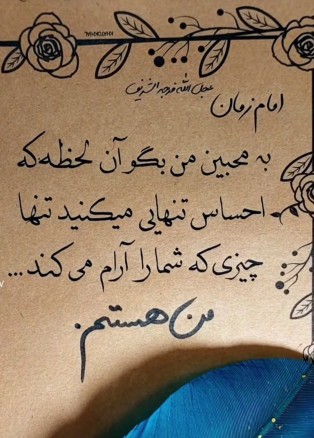 عجل الله فرجه الشریف
امام زمان
به محبین من بگو آن لحظه که
احساس تنهایی میکنید تنها
چیزی که شما را آرام می کند...
من هستم.